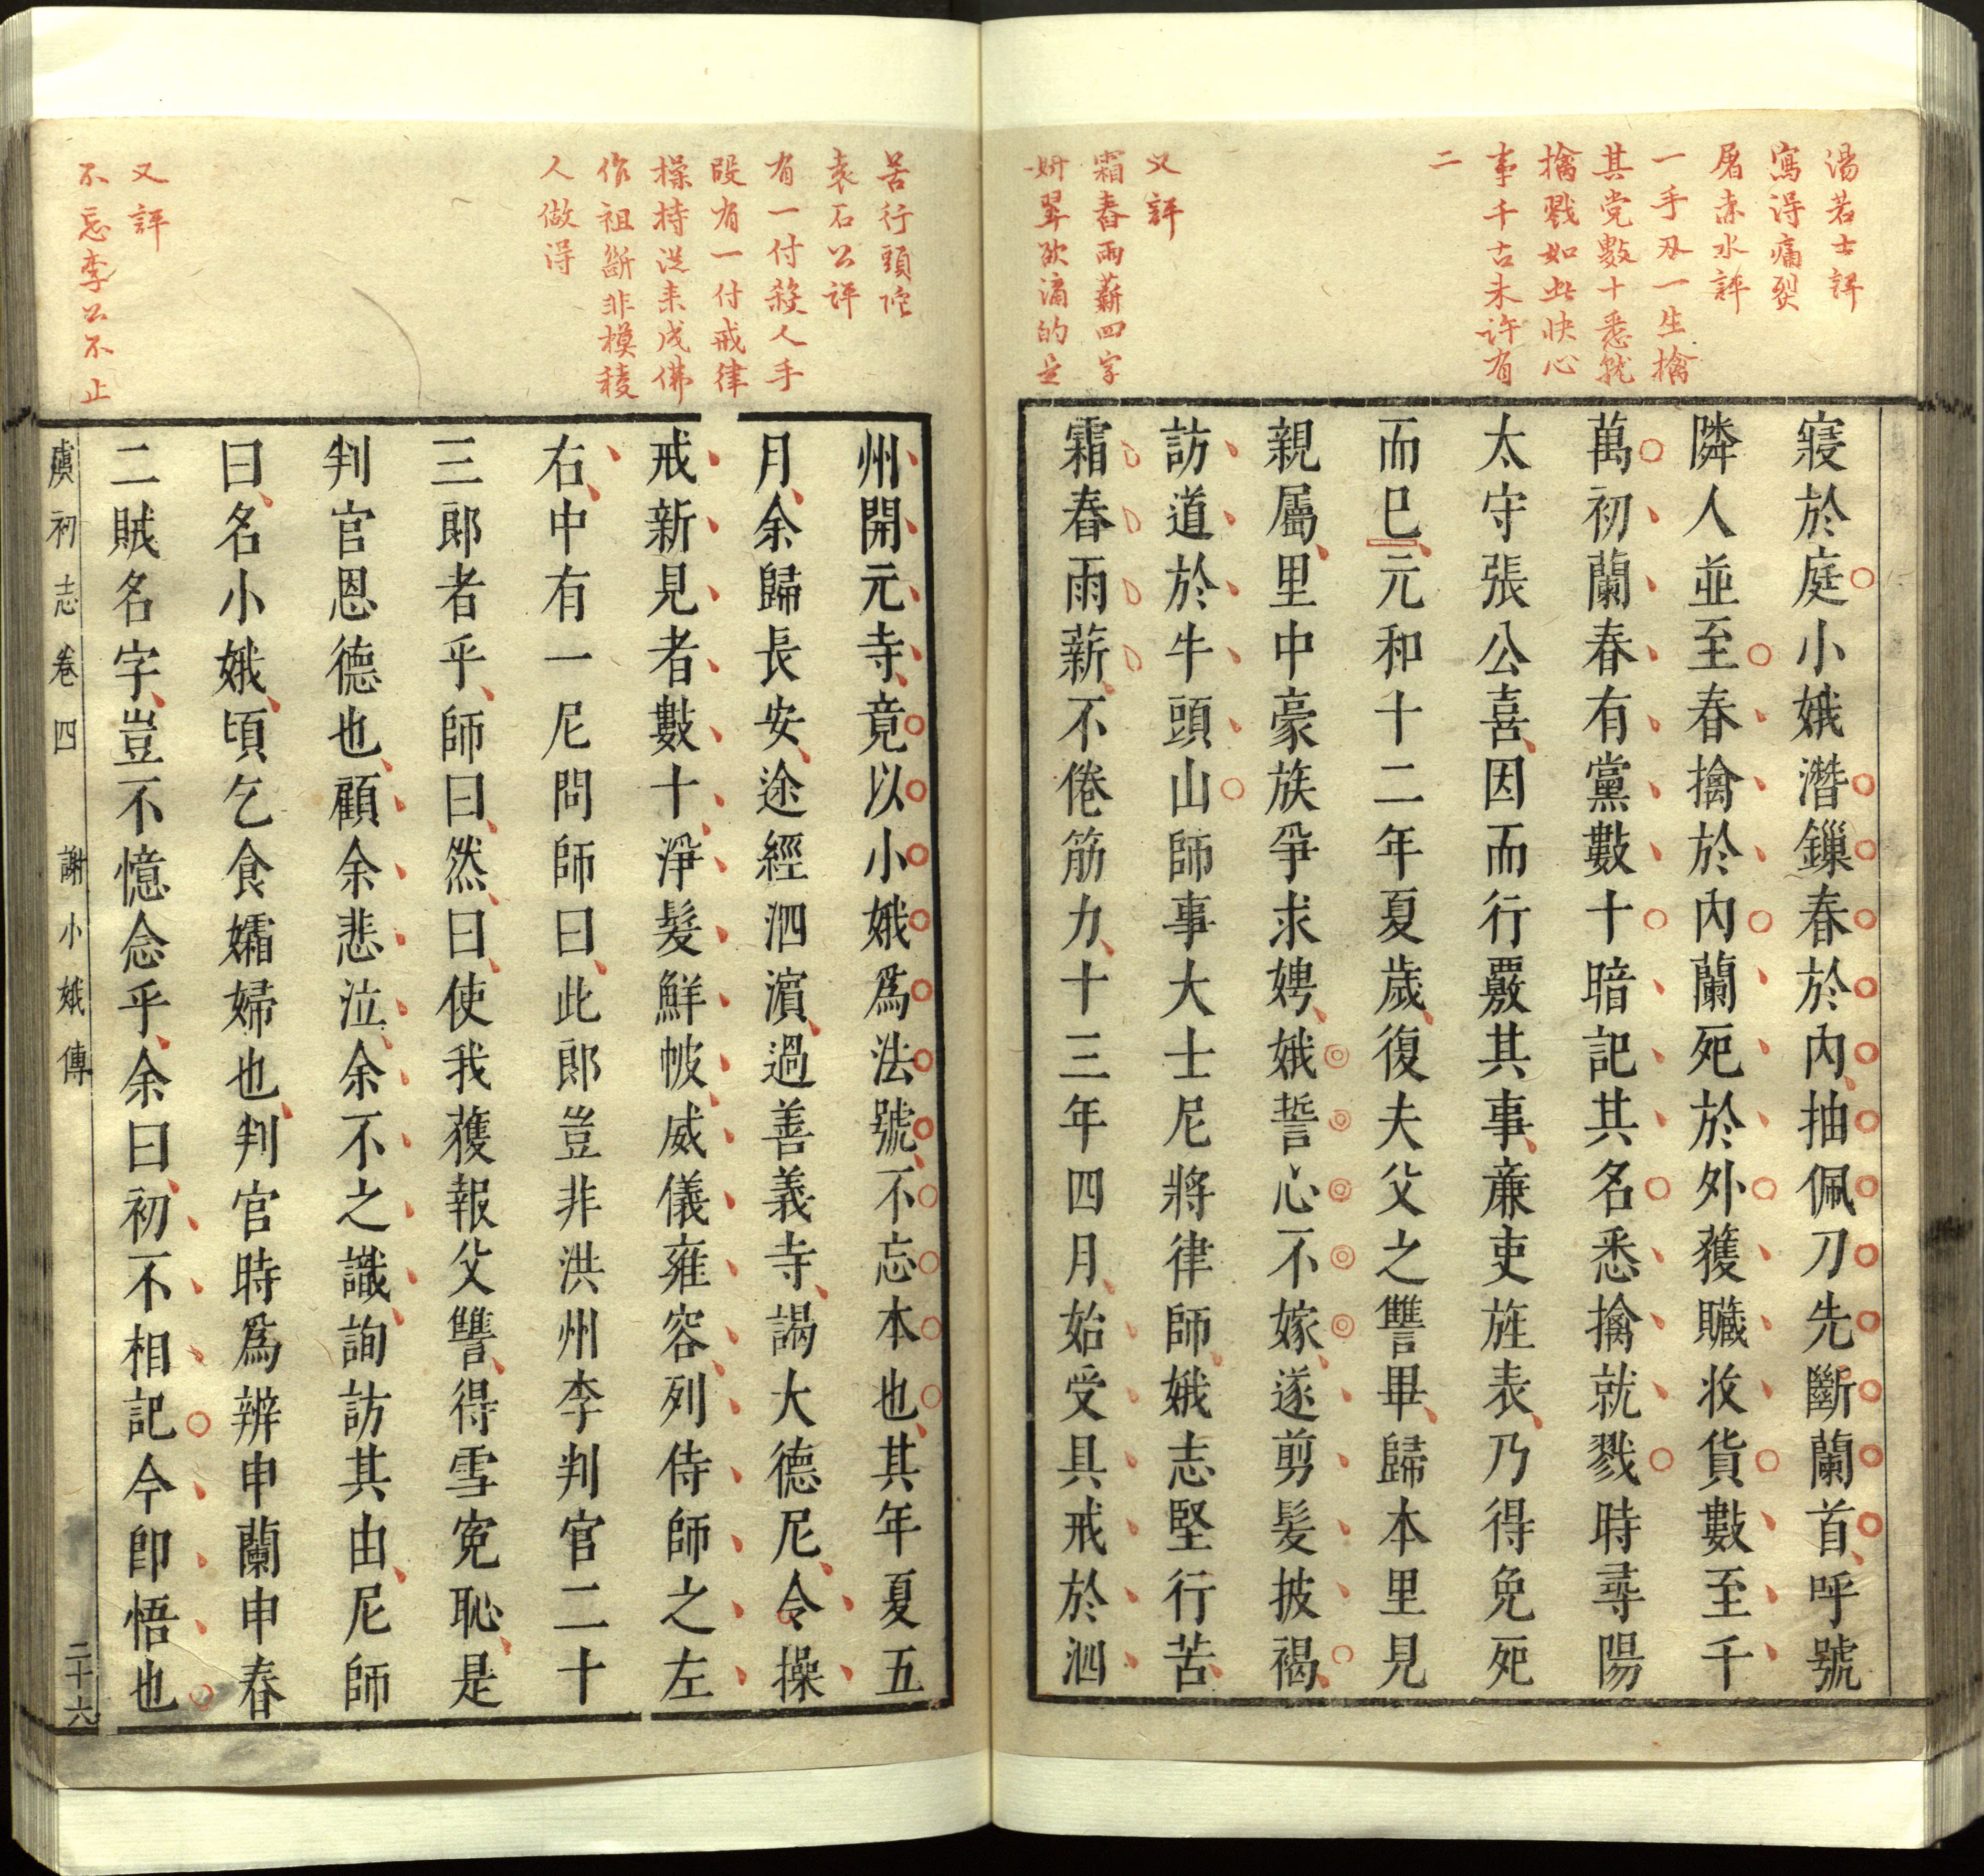 湯若士評
寫得痛裂
屠赤水評
一手刃一生擒
其党數十悉就
擒戮如此快心
事千古未許有
二
又評
霜舂雨薪四字
妍翠欲滴的是
寢於庭小娥潛鏁春於內抽佩刀先斷蘭首呼號
隣人並至春擒於內蘭死於外獲贓收貨數至千
萬初蘭春有黨數十暗記其名悉擒就戮時尋陽
太守張公喜因而行覈其事廉吏旌表乃得免死
而已元和十二年夏歲復夫父之讐畢歸本里見
親屬里中豪族爭求娉娥誓心不嫁遂剪髮披褐
訪道於牛頭山師事大士尼將律師娥志堅行苦
霜舂雨薪不倦筋力十三年四月始受具戒於泗
苦行頭陀
袁石公評
有一付殺人手
段有一付戒律
操持従来成佛
作祖斷非模稜
人做得
又評
不忘李公不止
州開元寺竟以小娥爲法號不忘本也其年夏五
月余歸長安途經泗濵過善義寺謁大德尼令操
戒新見者數十淨髮鮮帔威儀雍容列侍師之左
右中有一尼問師曰此郎豈非洪州李判官二十
三郎者乎師曰然曰使我獲報父讐得雪寃恥是
判官恩德也顧余悲泣余不之識詢訪其由尼師
曰名小娥頃乞食孀婦也判官時爲辨申蘭申春
二賊名字豈不憶念乎余曰初不相記今卽悟也
虞初志卷四 謝小娥傳 二十六